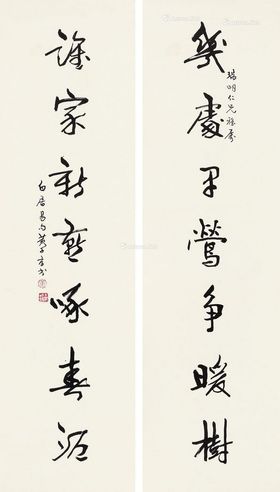 幾處早鶯争暖樹
瑞明仁兄雅屬
誰家新燕啄春泥
白居易句